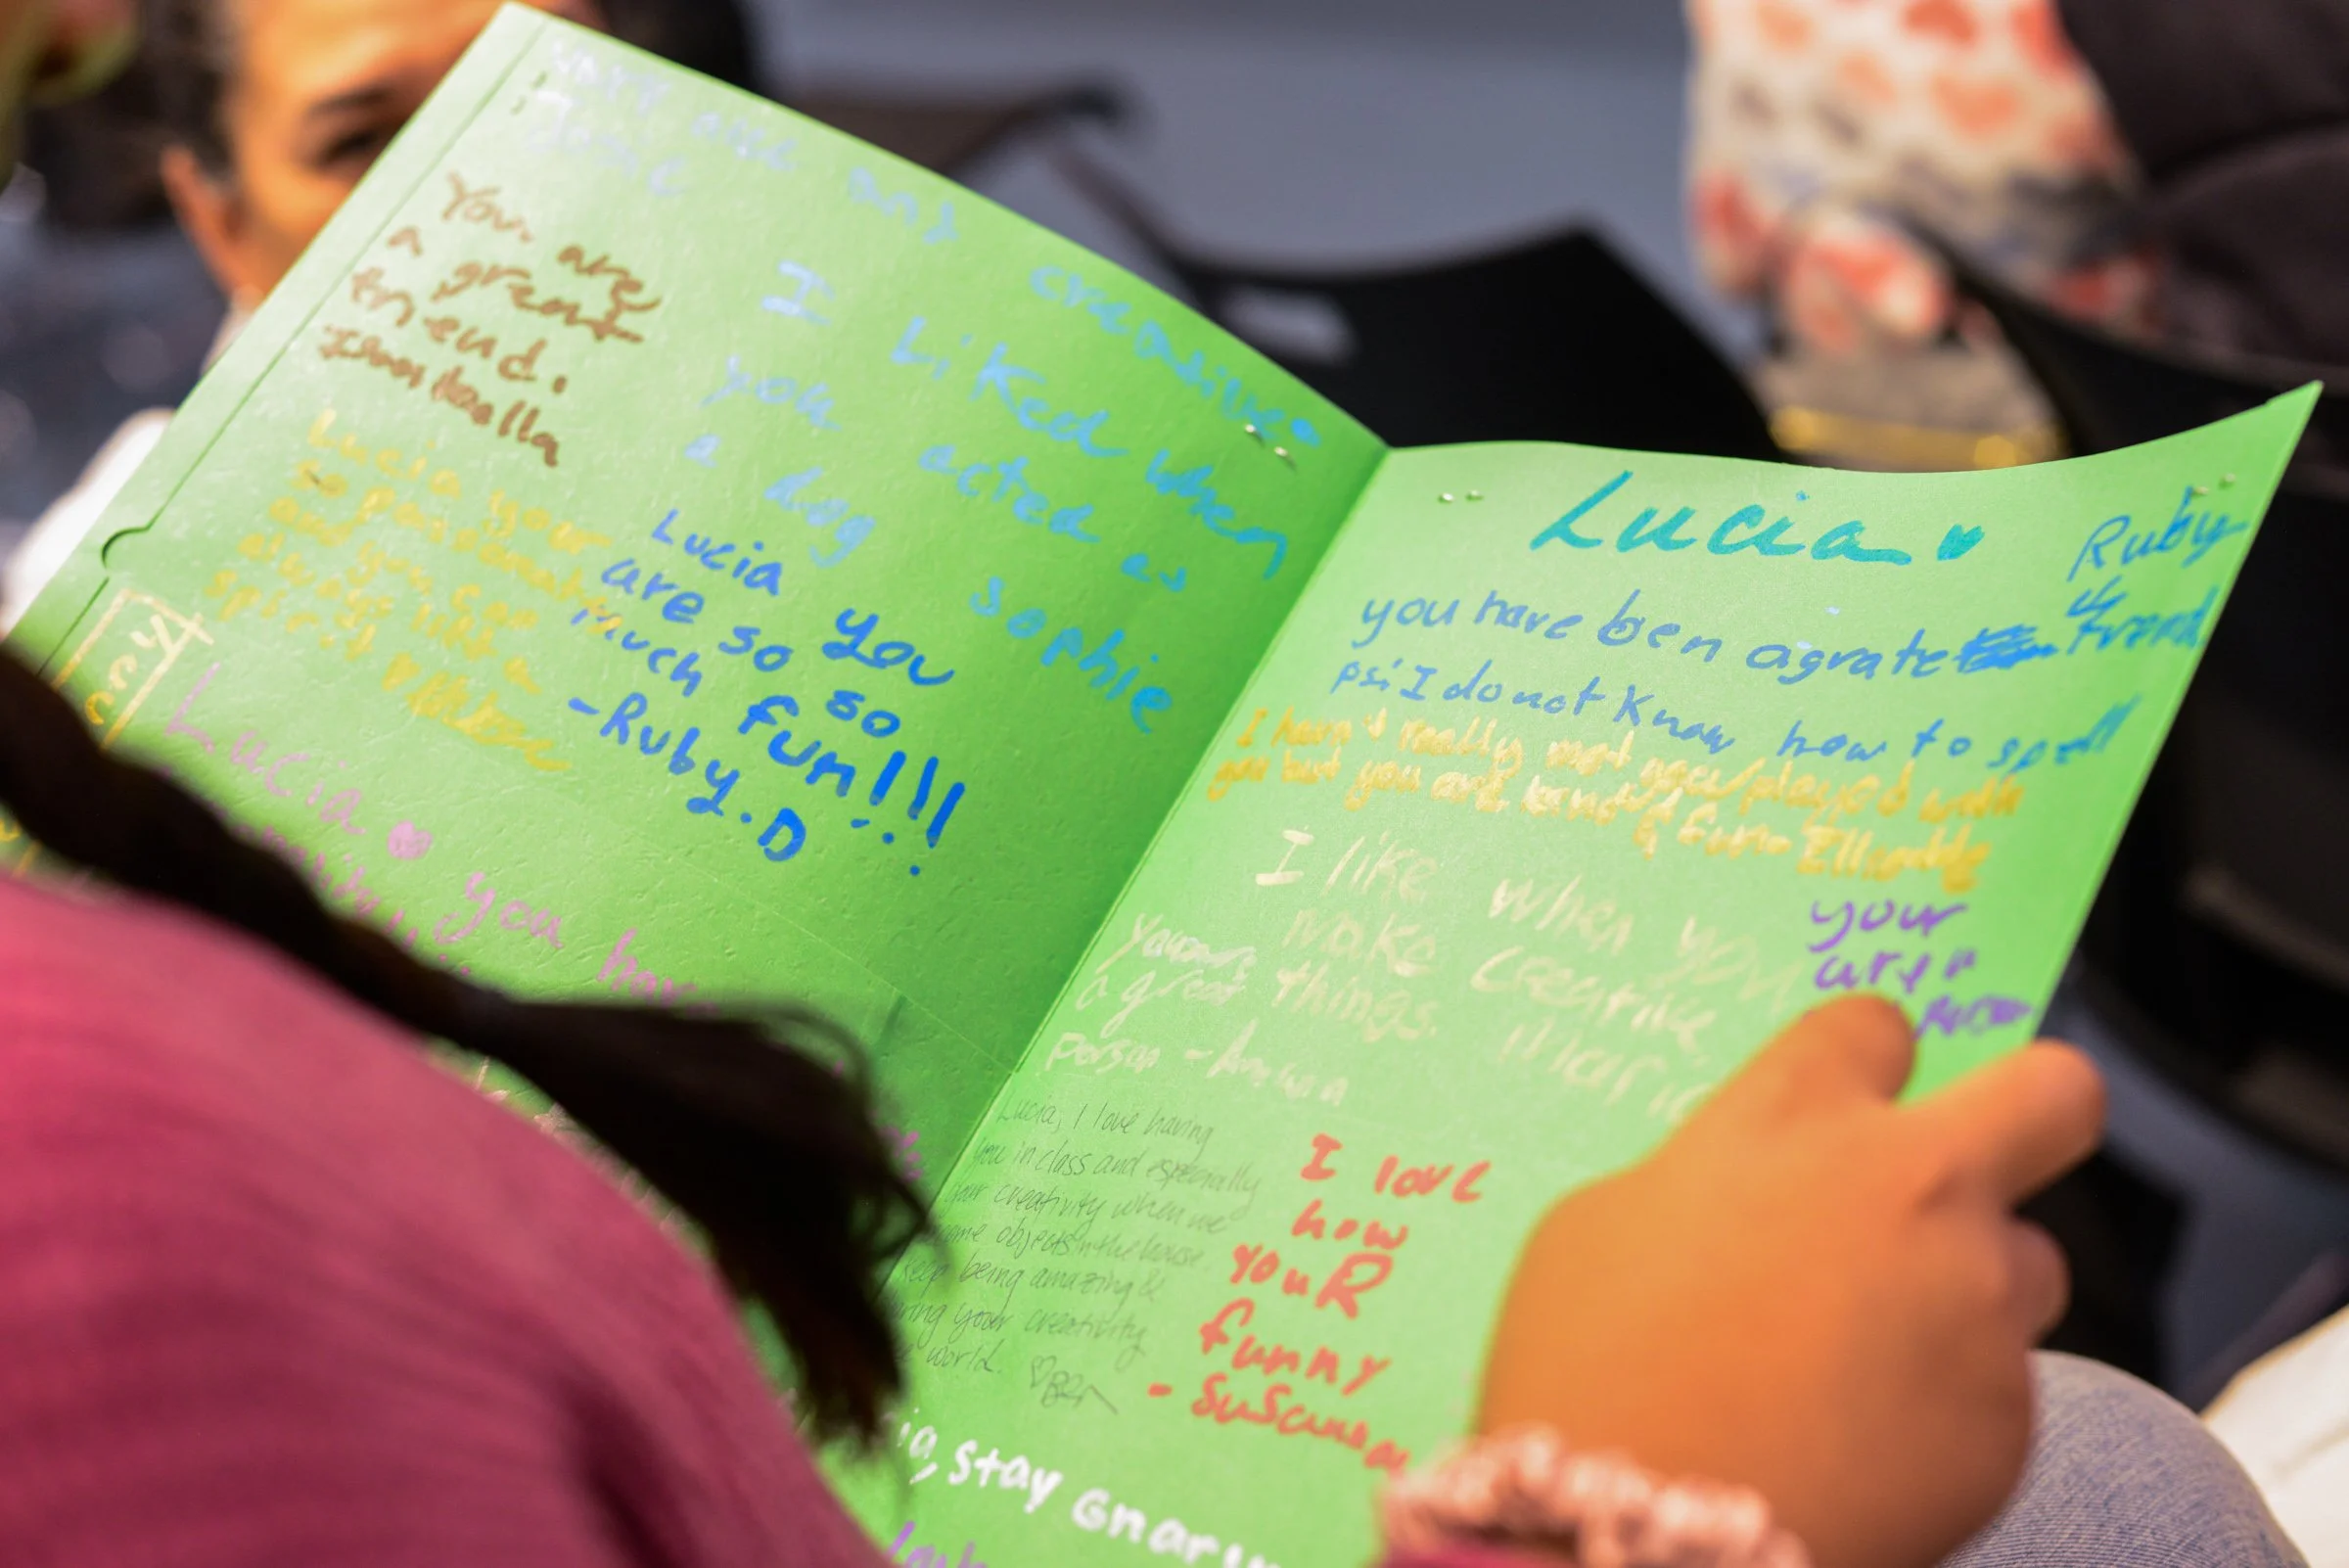 You are
a great
friend.
creative.
I Liked when
you acted as
a dog Sophie
Lucia your
so passionate
and you can
always lift a
spirit
Lucia you
are so so
Much fun!!!
-Ruby.D
Lucia
you have
Lucia
Ruby
you have ben agrate frend
psi I do not Know how to spell
I haven't really met you/played with
you but you are kind & fun
I like when you
make creative
things. Maria
a great
person -
your
are a
Lucia, I love having
you in class and especially
your creativity when we
objects in the house.
Keep being amazing &
your creativity
world.
Ben
I love
how
youR
funny
- Susanna
stay Gnar